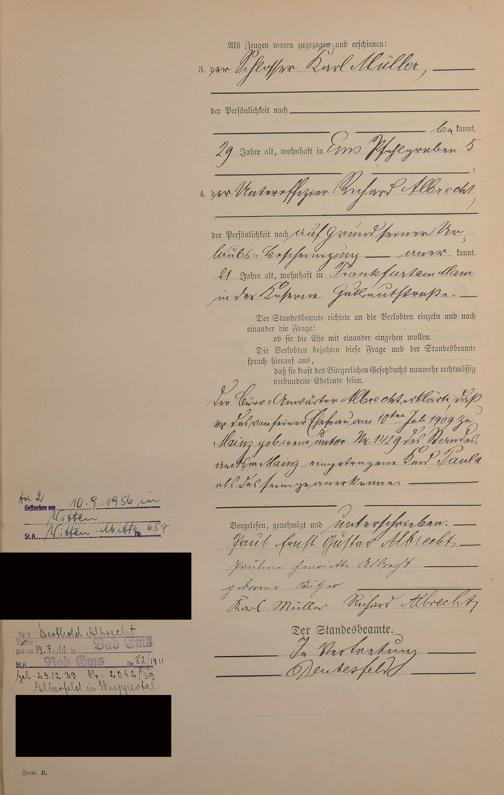 Als Zeugen waren zugezogen und erschienen:
3. der Schlosser Karl Müller,
der Persönlichkeit nach
be kannt,
29 Jahre alt, wohnhaft in Ems Pfahlgraben 5
;
4. der Unteroffizier Richard Albrecht,
der Persönlichkeit nach auf Grund seiner Ur-
laubs-Bescheinigung aner kannt,
21 Jahre alt, wohnhaft in Frankfurt am Main
in der Kaserne Gutleutstraße.
Der Standesbeamte richtete an die Verlobten einzeln und nach
einander die Frage:
ob sie die Ehe mit einander eingehen wollen.
Die Verlobten bejahten diese Frage und der Standesbeamte
sprach hierauf aus,
daß sie kraft des Bürgerlichen Gesetzbuchs nunmehr rechtmäßig
verbundene Eheleute seien.
Der Büro-Anwärter Albrecht erklärte, daß
er das von seiner Ehefrau am 10ten Juli 1909 zu
Mainz geborene, unter Nr. 1429 des Standes-
amts Mainz eingetragene Kind Paula
als das seinige anerkenne.
Vorgelesen, genehmigt und unterschrieben.
Paul Ernst Gustav Albrecht
Pauline Henriette Albrecht
geborene
Karl Müller Richard Albrecht
Der Standesbeamte.
In Vertretung
Zu 2
Gestorben am 10.9.1956 in
Witten
St.A. Witten-Mitte Nr. 657
Berthold Albrecht
19.7.11 in Bad Ems
St.A. Bad Ems Nr. 82/1911
23.12.39 Nr. 2062/39
Elberfeld in Wuppertal.
Form. B.